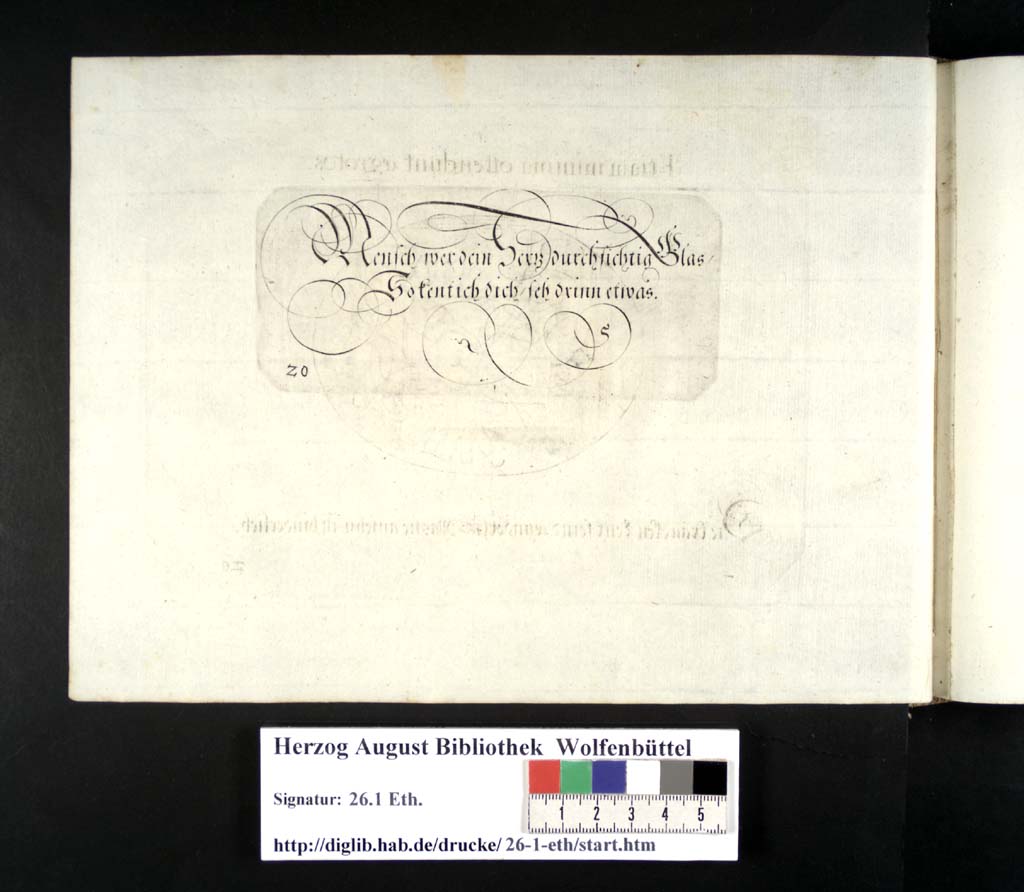 Mensch wer dein Hertz durchsichtig Glas /
So kent ich dich / seh drinn etwas.
20
Herzog August Bibliothek Wolfenbüttel
Signatur: 26.1 Eth.
1 2 3 4 5
http://diglib.hab.de/drucke/ 26-1-eth/start.htm